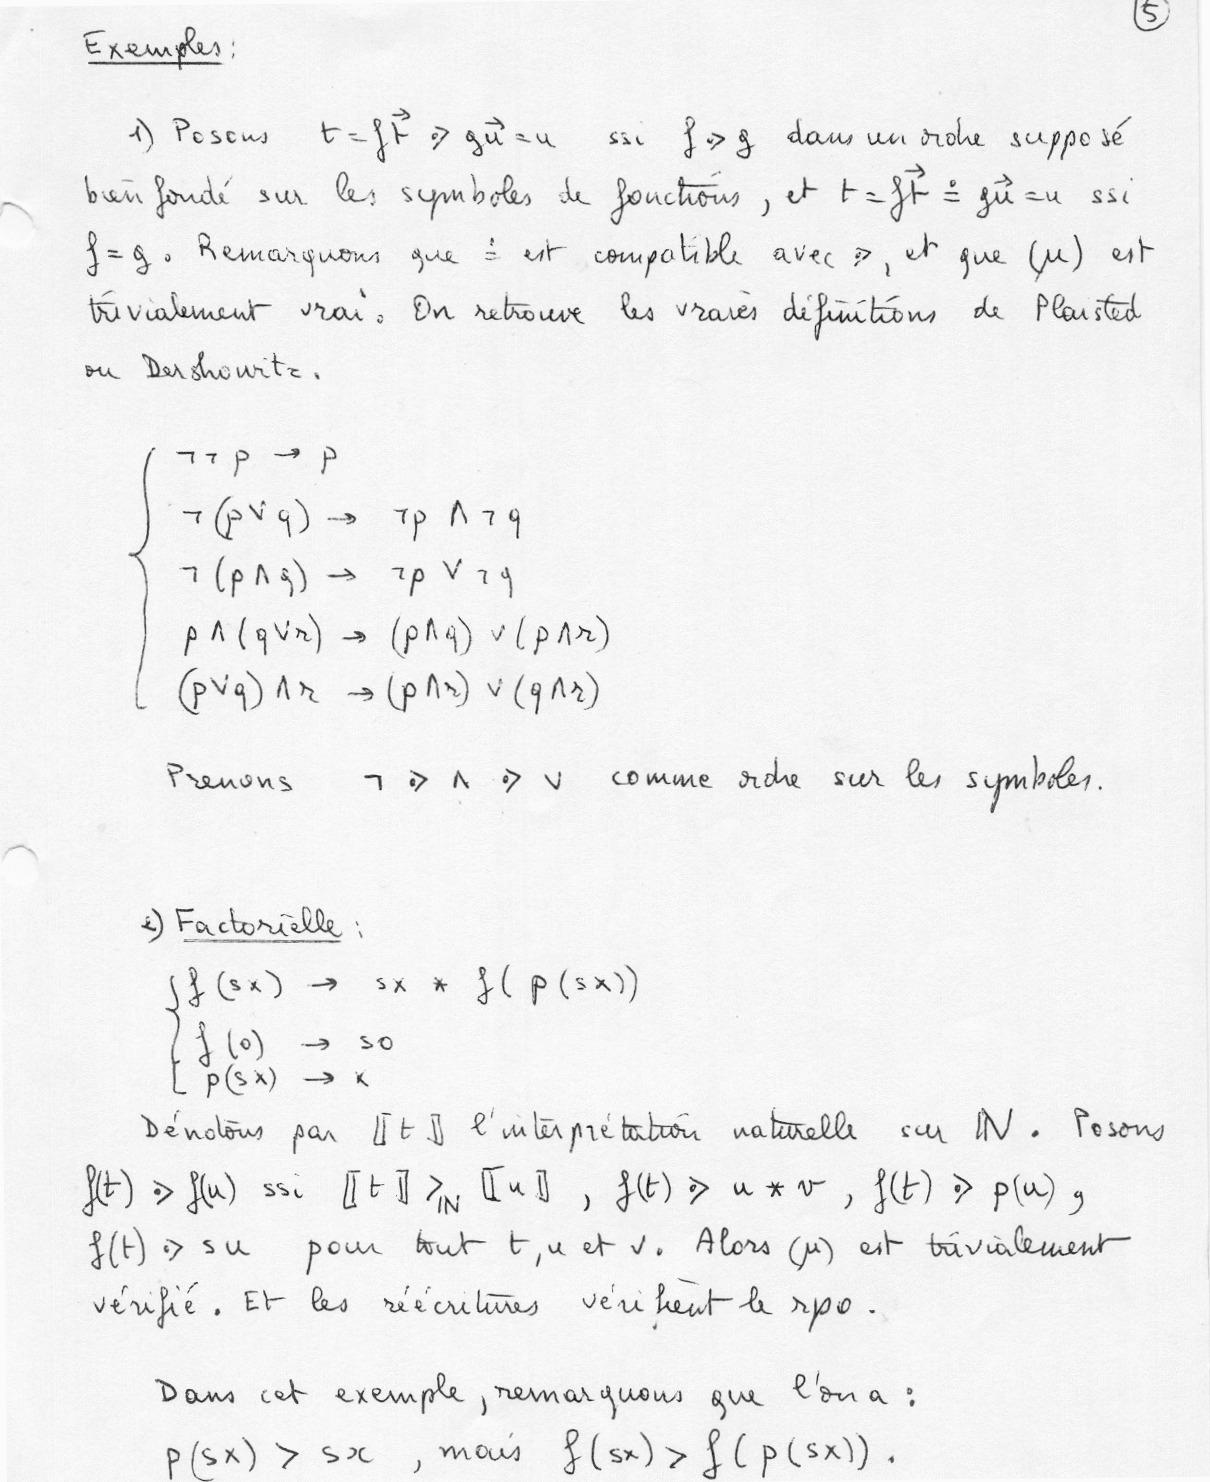 5
Exemples:
1) Posons t = f t⃗ ⋗ g u⃗ = u ssi f ⋗ g dans un ordre supposé
bien fondé sur les symboles de fonctions, et t = f t⃗ ≐ g u⃗ = u ssi
f = g. Remarquons que ≐ est compatible avec ⋗, et que (μ) est
trivialement vrai. On retrouve les vraies définitions de Plaisted
ou Dershowitz.
¬¬p → p
¬(p∨q) → ¬p ∧ ¬q
¬(p∧q) → ¬p ∨ ¬q
p∧(q∨r) → (p∧q) ∨ (p∧r)
(p∨q)∧r → (p∧r) ∨ (q∧r)
Prenons ¬ ⋗ ∧ ⋗ ∨ comme ordre sur les symboles.
2) Factorielle:
f(sx) → sx * f(p(sx))
f(0) → s0
p(sx) → x
Dénotons par ⟦t⟧ l'interprétation naturelle sur ℕ. Posons
f(t) ⋗ f(u) ssi ⟦t⟧ >ℕ ⟦u⟧, f(t) ⋗ u * v, f(t) ⋗ p(u),
f(t) ⋗ su pour tout t, u et v. Alors (μ) est trivialement
vérifié. Et les réécritures vérifient le rpo.
Dans cet exemple, remarquons que l'on a:
p(sx) > sx, mais f(sx) > f(p(sx)).